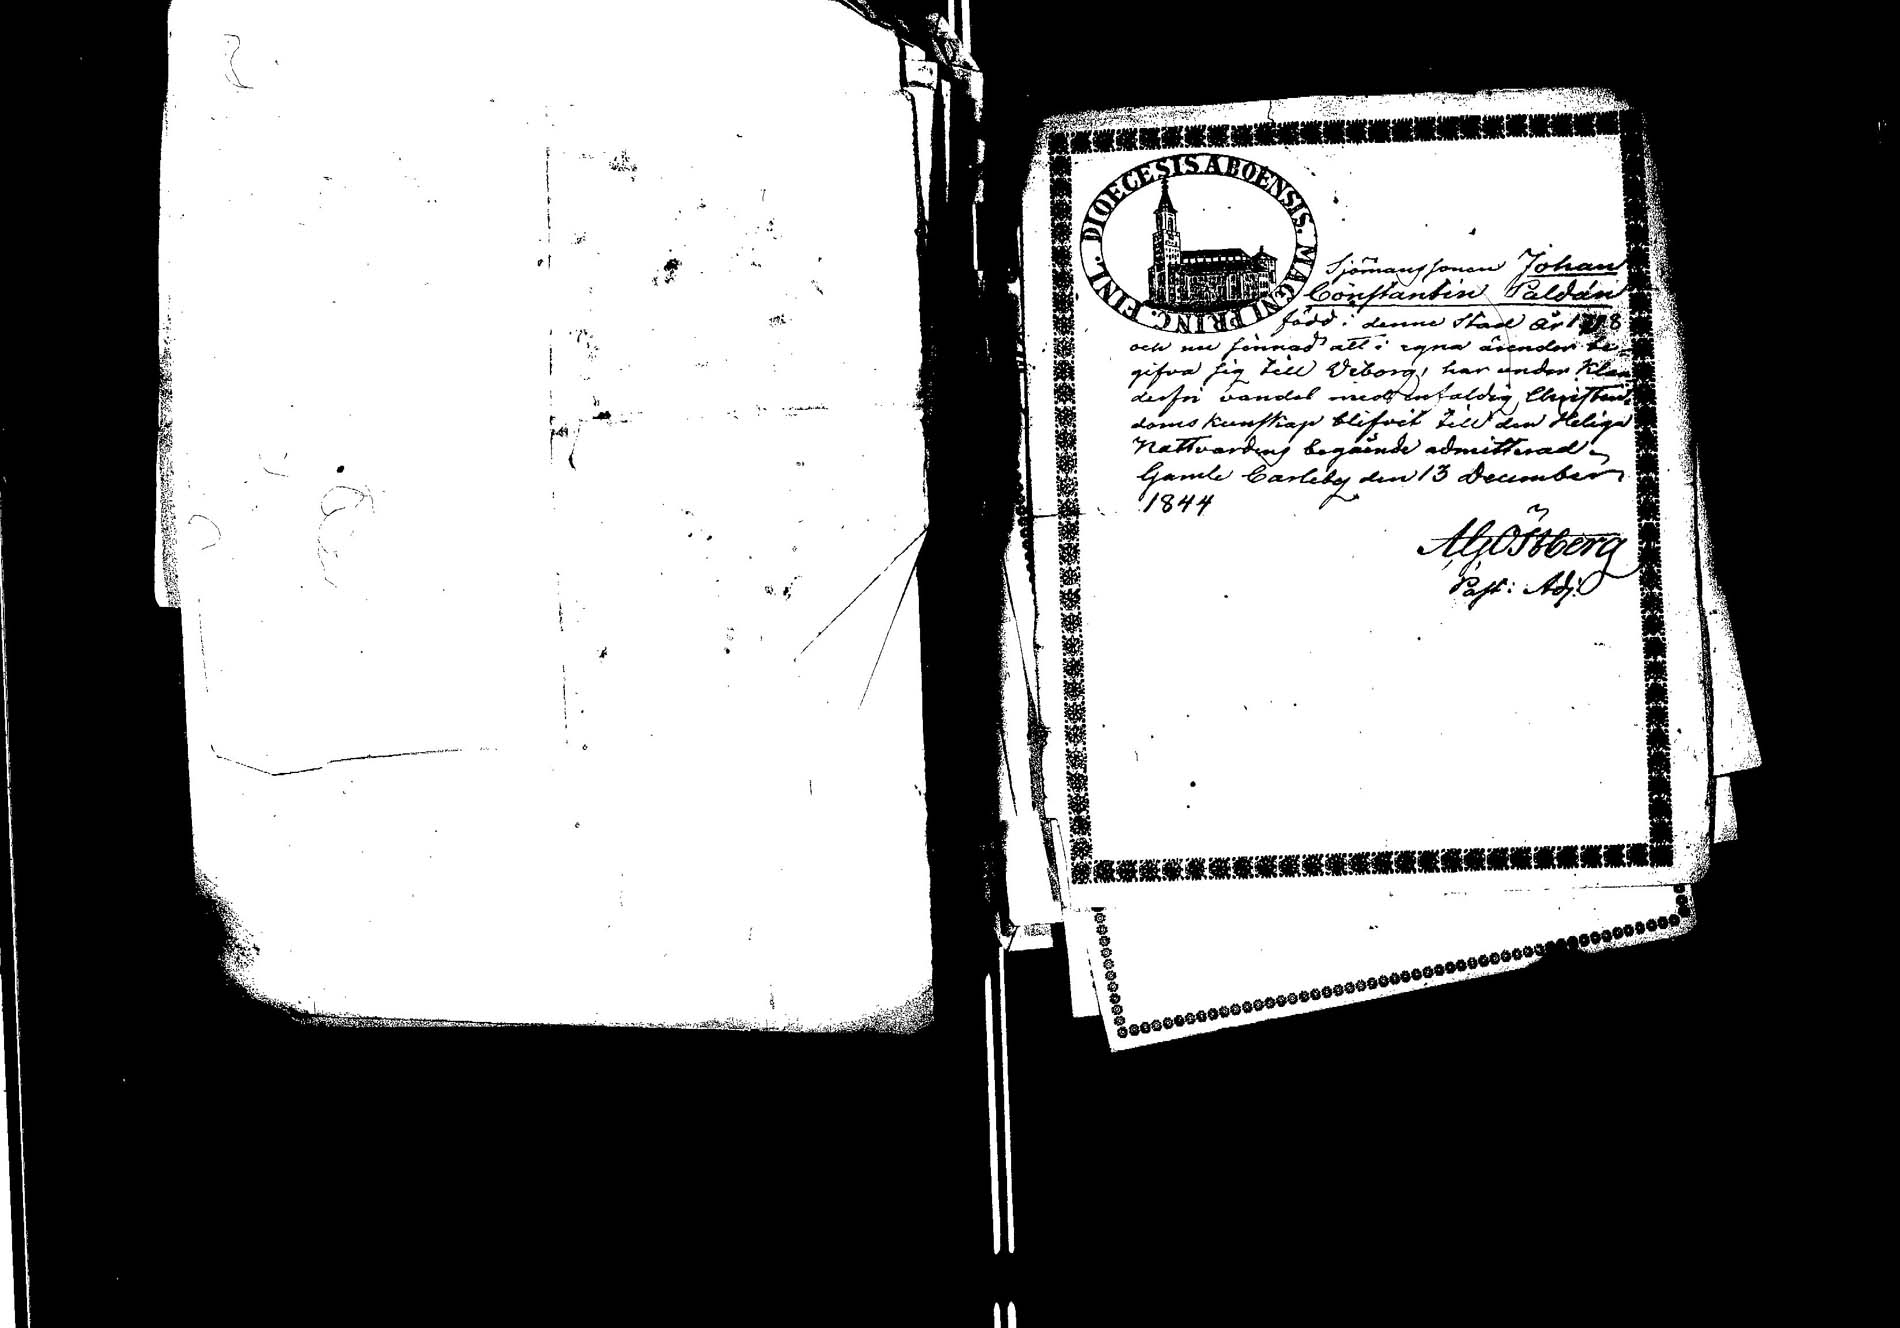 DIOECESIS ABOENSIS. MAGNI PRINC. FINL.
Sjömanssonen Johan
Constantin Paldán
född i denne Stad år 18
och nu sinnad att i egna ärender be-
gifva sig till Viborg, har under Klan
derfri vandel med enfaldig Christen-
doms kunskap blifvit till den Heliga
Nattvardens begående admitterad
Gamle Carleby den 13 December
1844
AGÖstberg
Past: Adj.